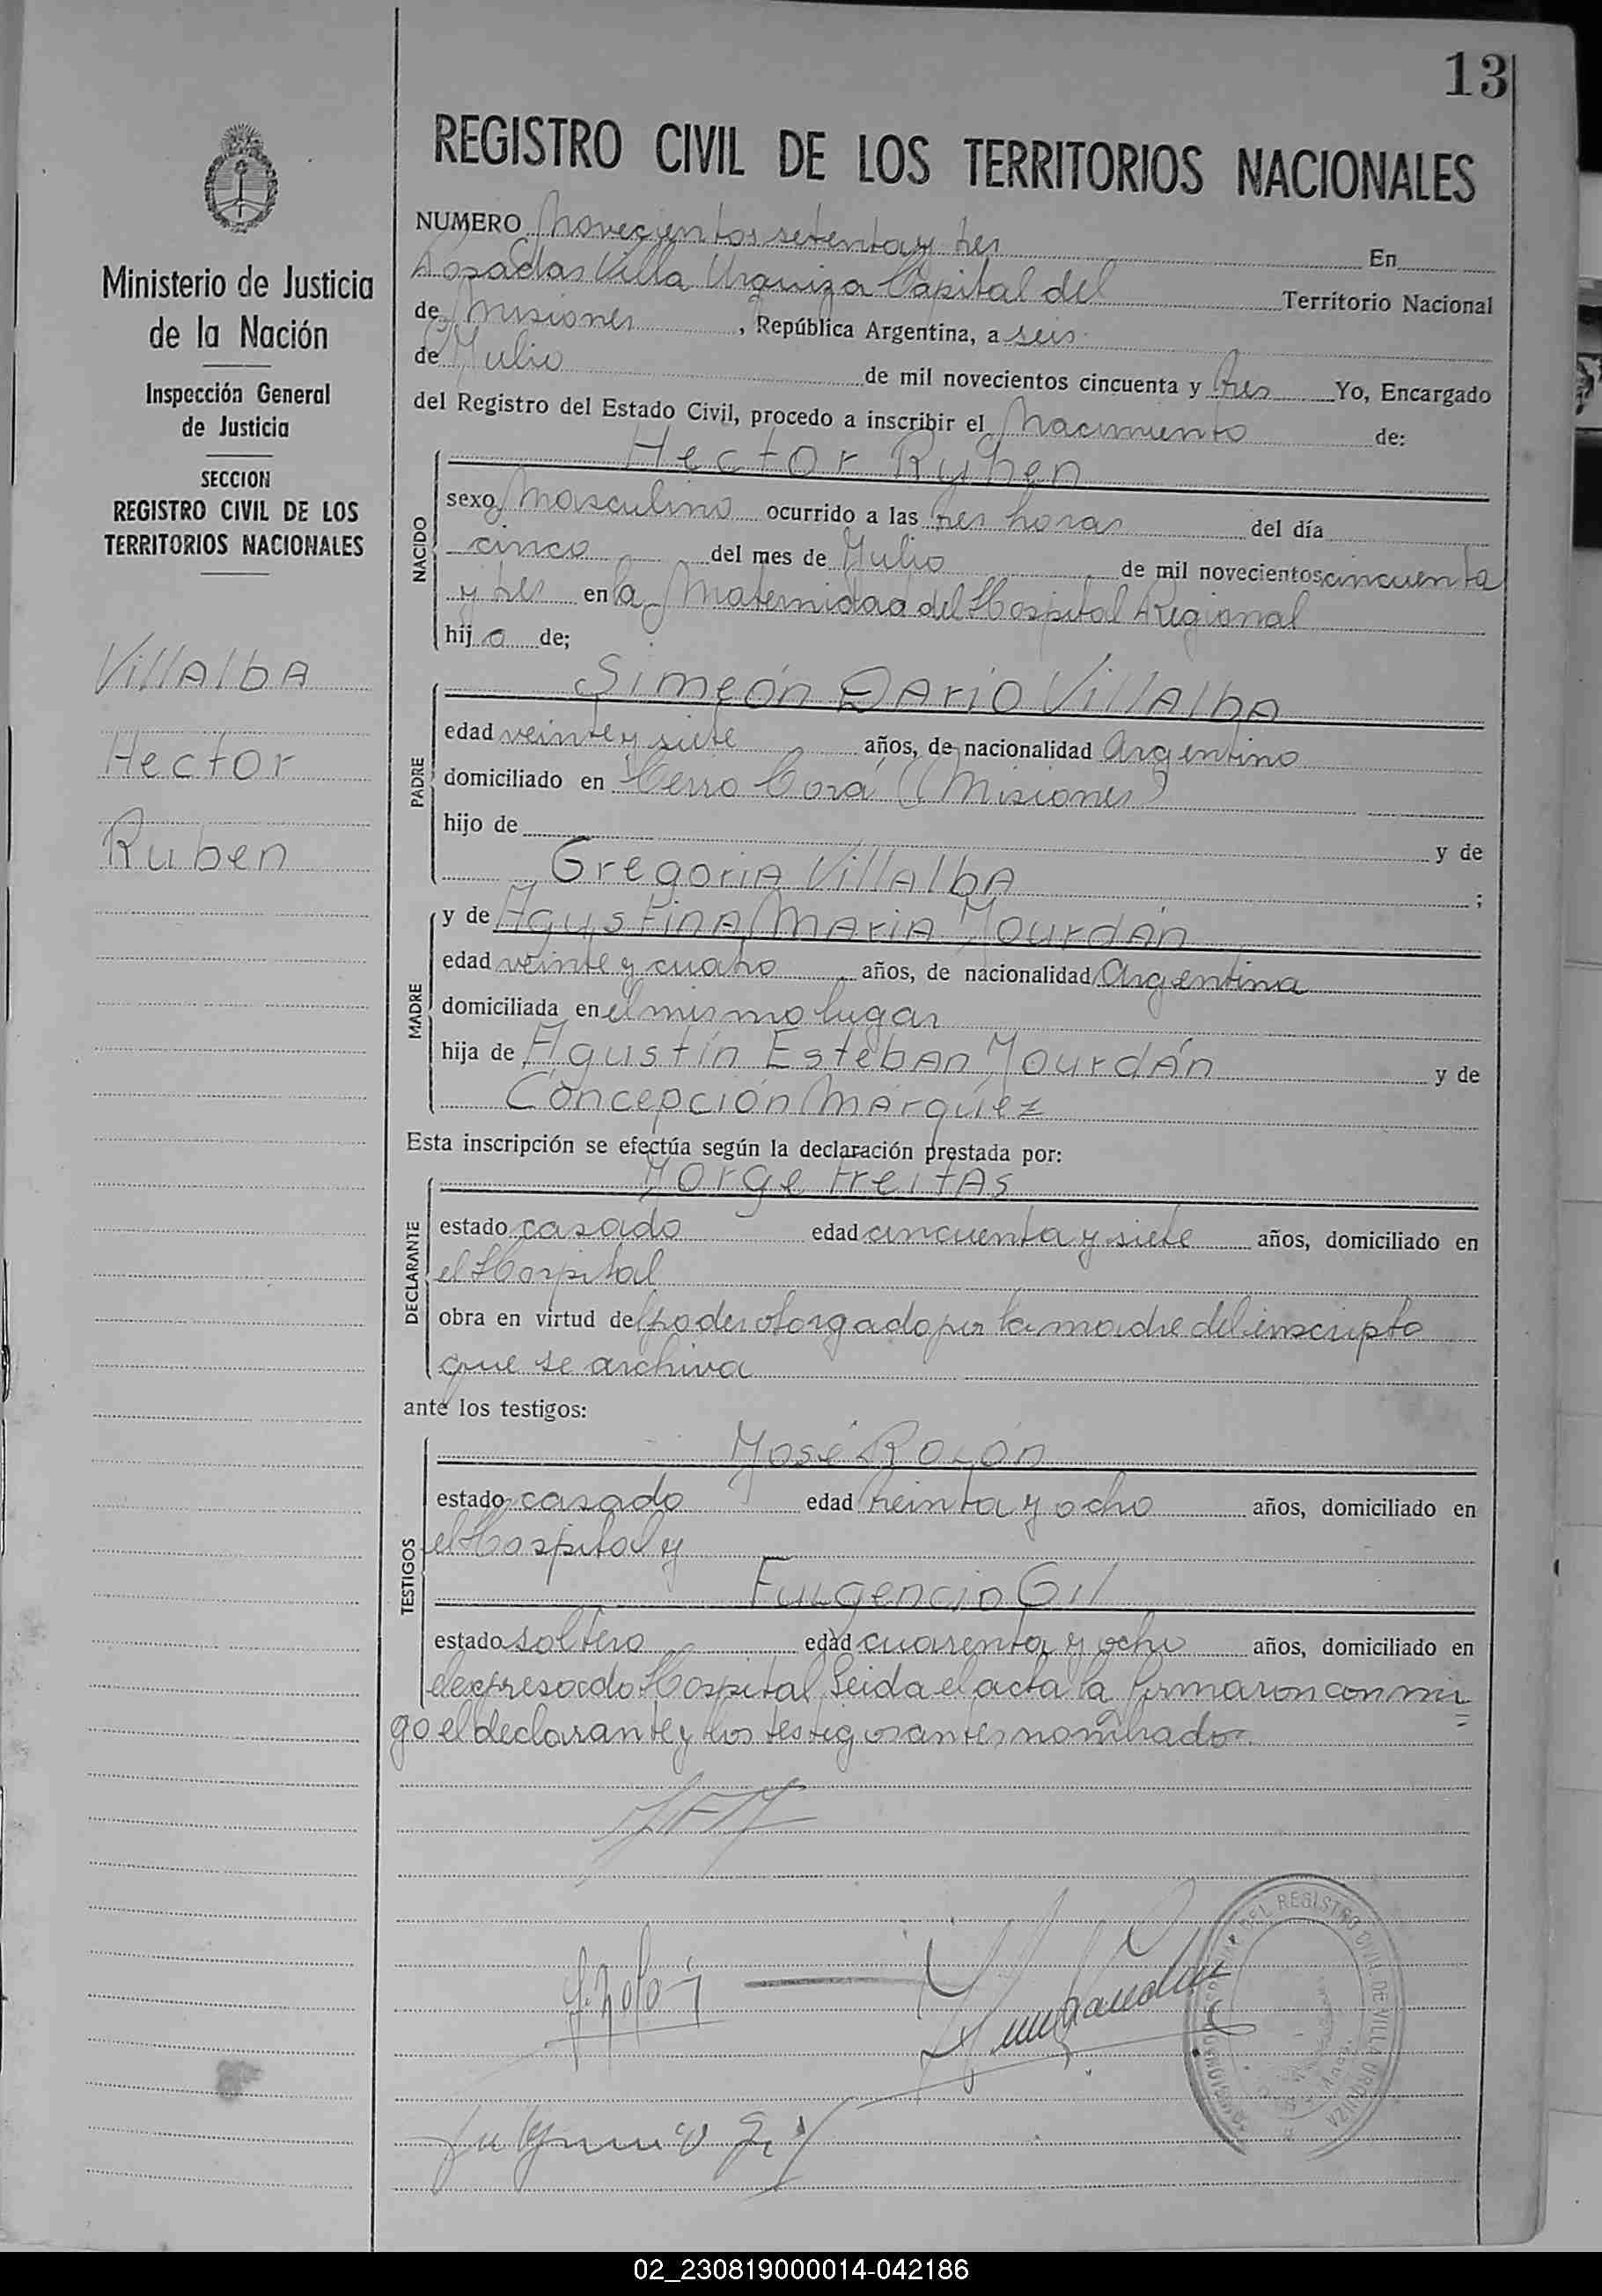 13
REGISTRO CIVIL DE LOS TERRITORIOS NACIONALES
Ministerio de Justicia
de la Nación
Inspección General
de Justicia
SECCION
REGISTRO CIVIL DE LOS
TERRITORIOS NACIONALES
Villalba
Hector
Ruben
NUMERO Novecientos setenta y tres En
Posadas Villa Urquiza Capital del Territorio Nacional
de Misiones, República Argentina, a seis
de Julio de mil novecientos cincuenta y tres Yo, Encargado
del Registro del Estado Civil, procedo a inscribir el Nacimiento de:
Hector Ruben
NACIDO
sexo Masculino ocurrido a las tres horas del día
cinco del mes de Julio de mil novecientos cincuenta
y tres en la Maternidad del Hospital Regional
hijo de;
Simeón Dario Villalba
PADRE
edad veinte y siete años, de nacionalidad Argentino
domiciliado en Cerro Corá (Misiones)
hijo de y de
Gregoria Villalba ;
MADRE
y de Agustina Maria Jourdán
edad veinte y cuatro años, de nacionalidad Argentina
domiciliada en el mismo lugar
hija de Agustín Esteban Jourdán y de
Concepción Márquez
Esta inscripción se efectúa según la declaración prestada por:
Jorge Freitas
DECLARANTE
estado casado edad cincuenta y siete años, domiciliado en
el Hospital
obra en virtud del poder otorgado por la madre del inscripto
que se archiva
ante los testigos:
José Rolón
TESTIGOS
estado casado edad treinta y ocho años, domiciliado en
el Hospital y
Fulgencio Gil
estado soltero edad cuarenta y ocho años, domiciliado en
el expresado Hospital Leida el acta la firmaron con mi
go el declarante y los testigos antes nombrado
DEL REGISTRO CIVIL DE VILLA URQUIZA
02_230819000014-042186